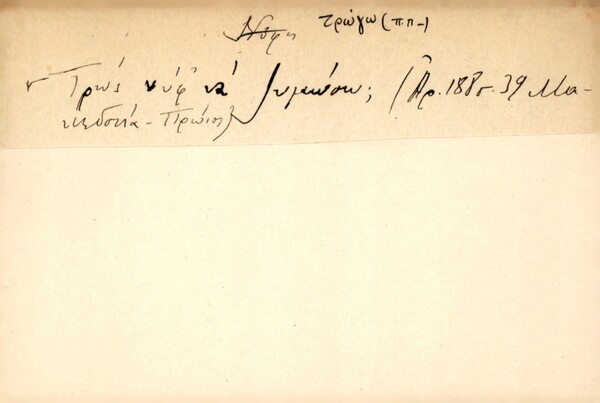 Νύφη τρώγω (π.π-)
Τρώς νύφ' νά ζυμώσω; (Ἀρ. 188 σ. 39 Μα-
κεδονία - Πρώιο)